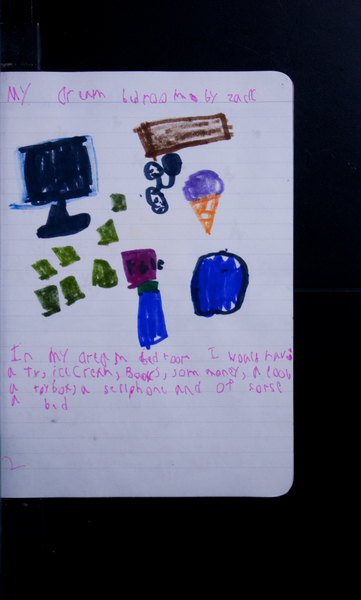 My dream bedroom by zack
In my dream bedroom I would have
a tv, ice cream, Books, som money, a
a toy box, a sellphone and of corse
a bed
2